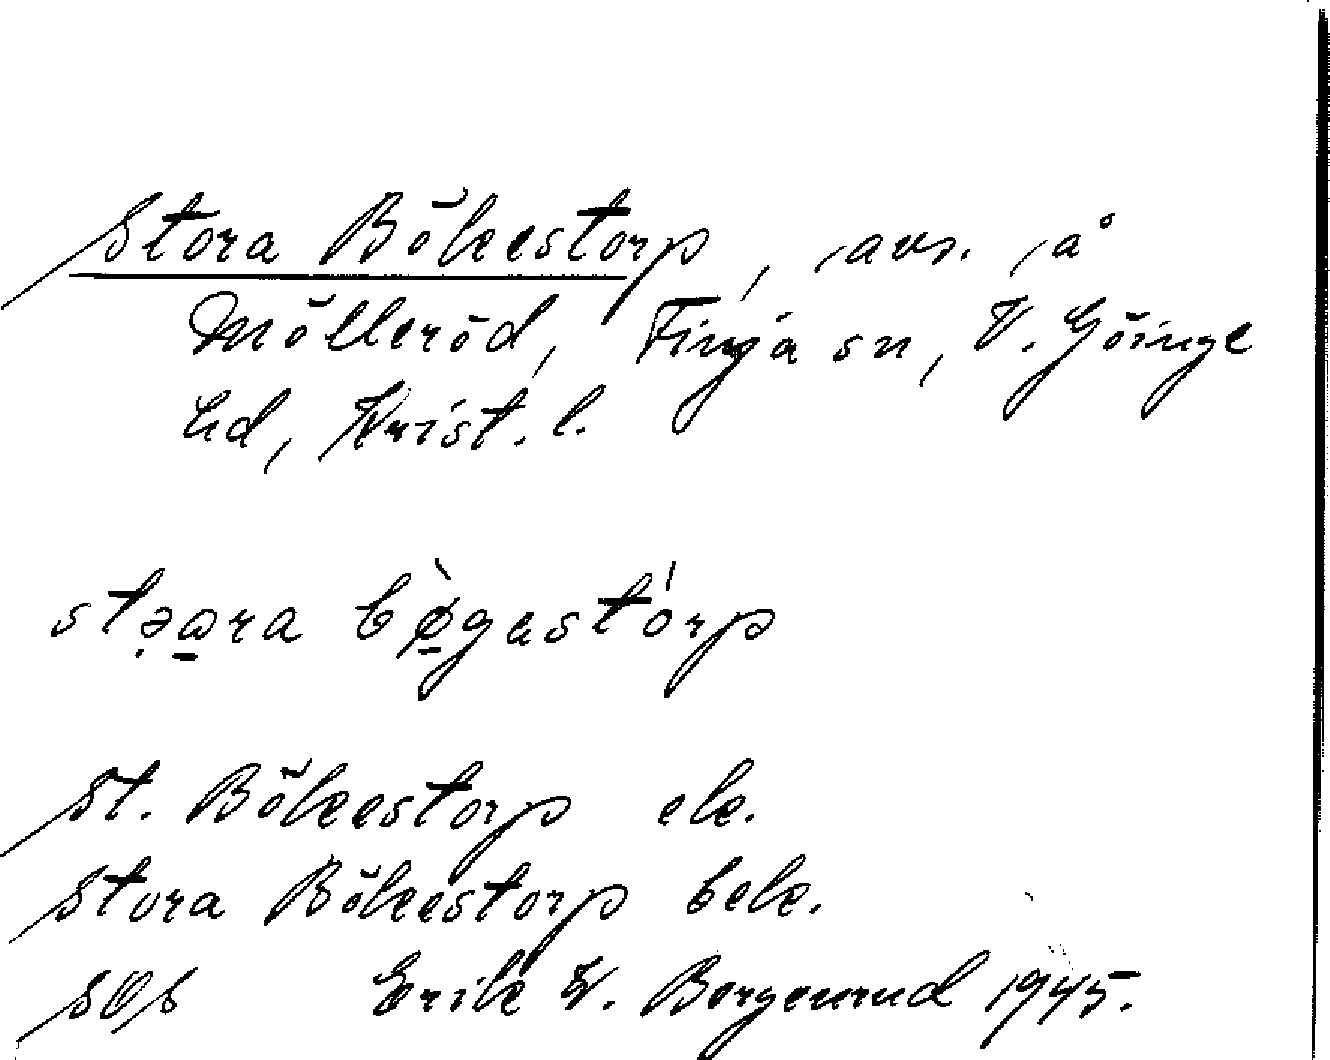 Stora Bökestorp, avs. å
Mölleröd, Finja sn, V. Göinge
hd, Krist. l.
stəara bø̀gastórp
St. Bökestorp ek.
Stora Bökestorp bek.
SOS Erik W. Bergenrud 1945.